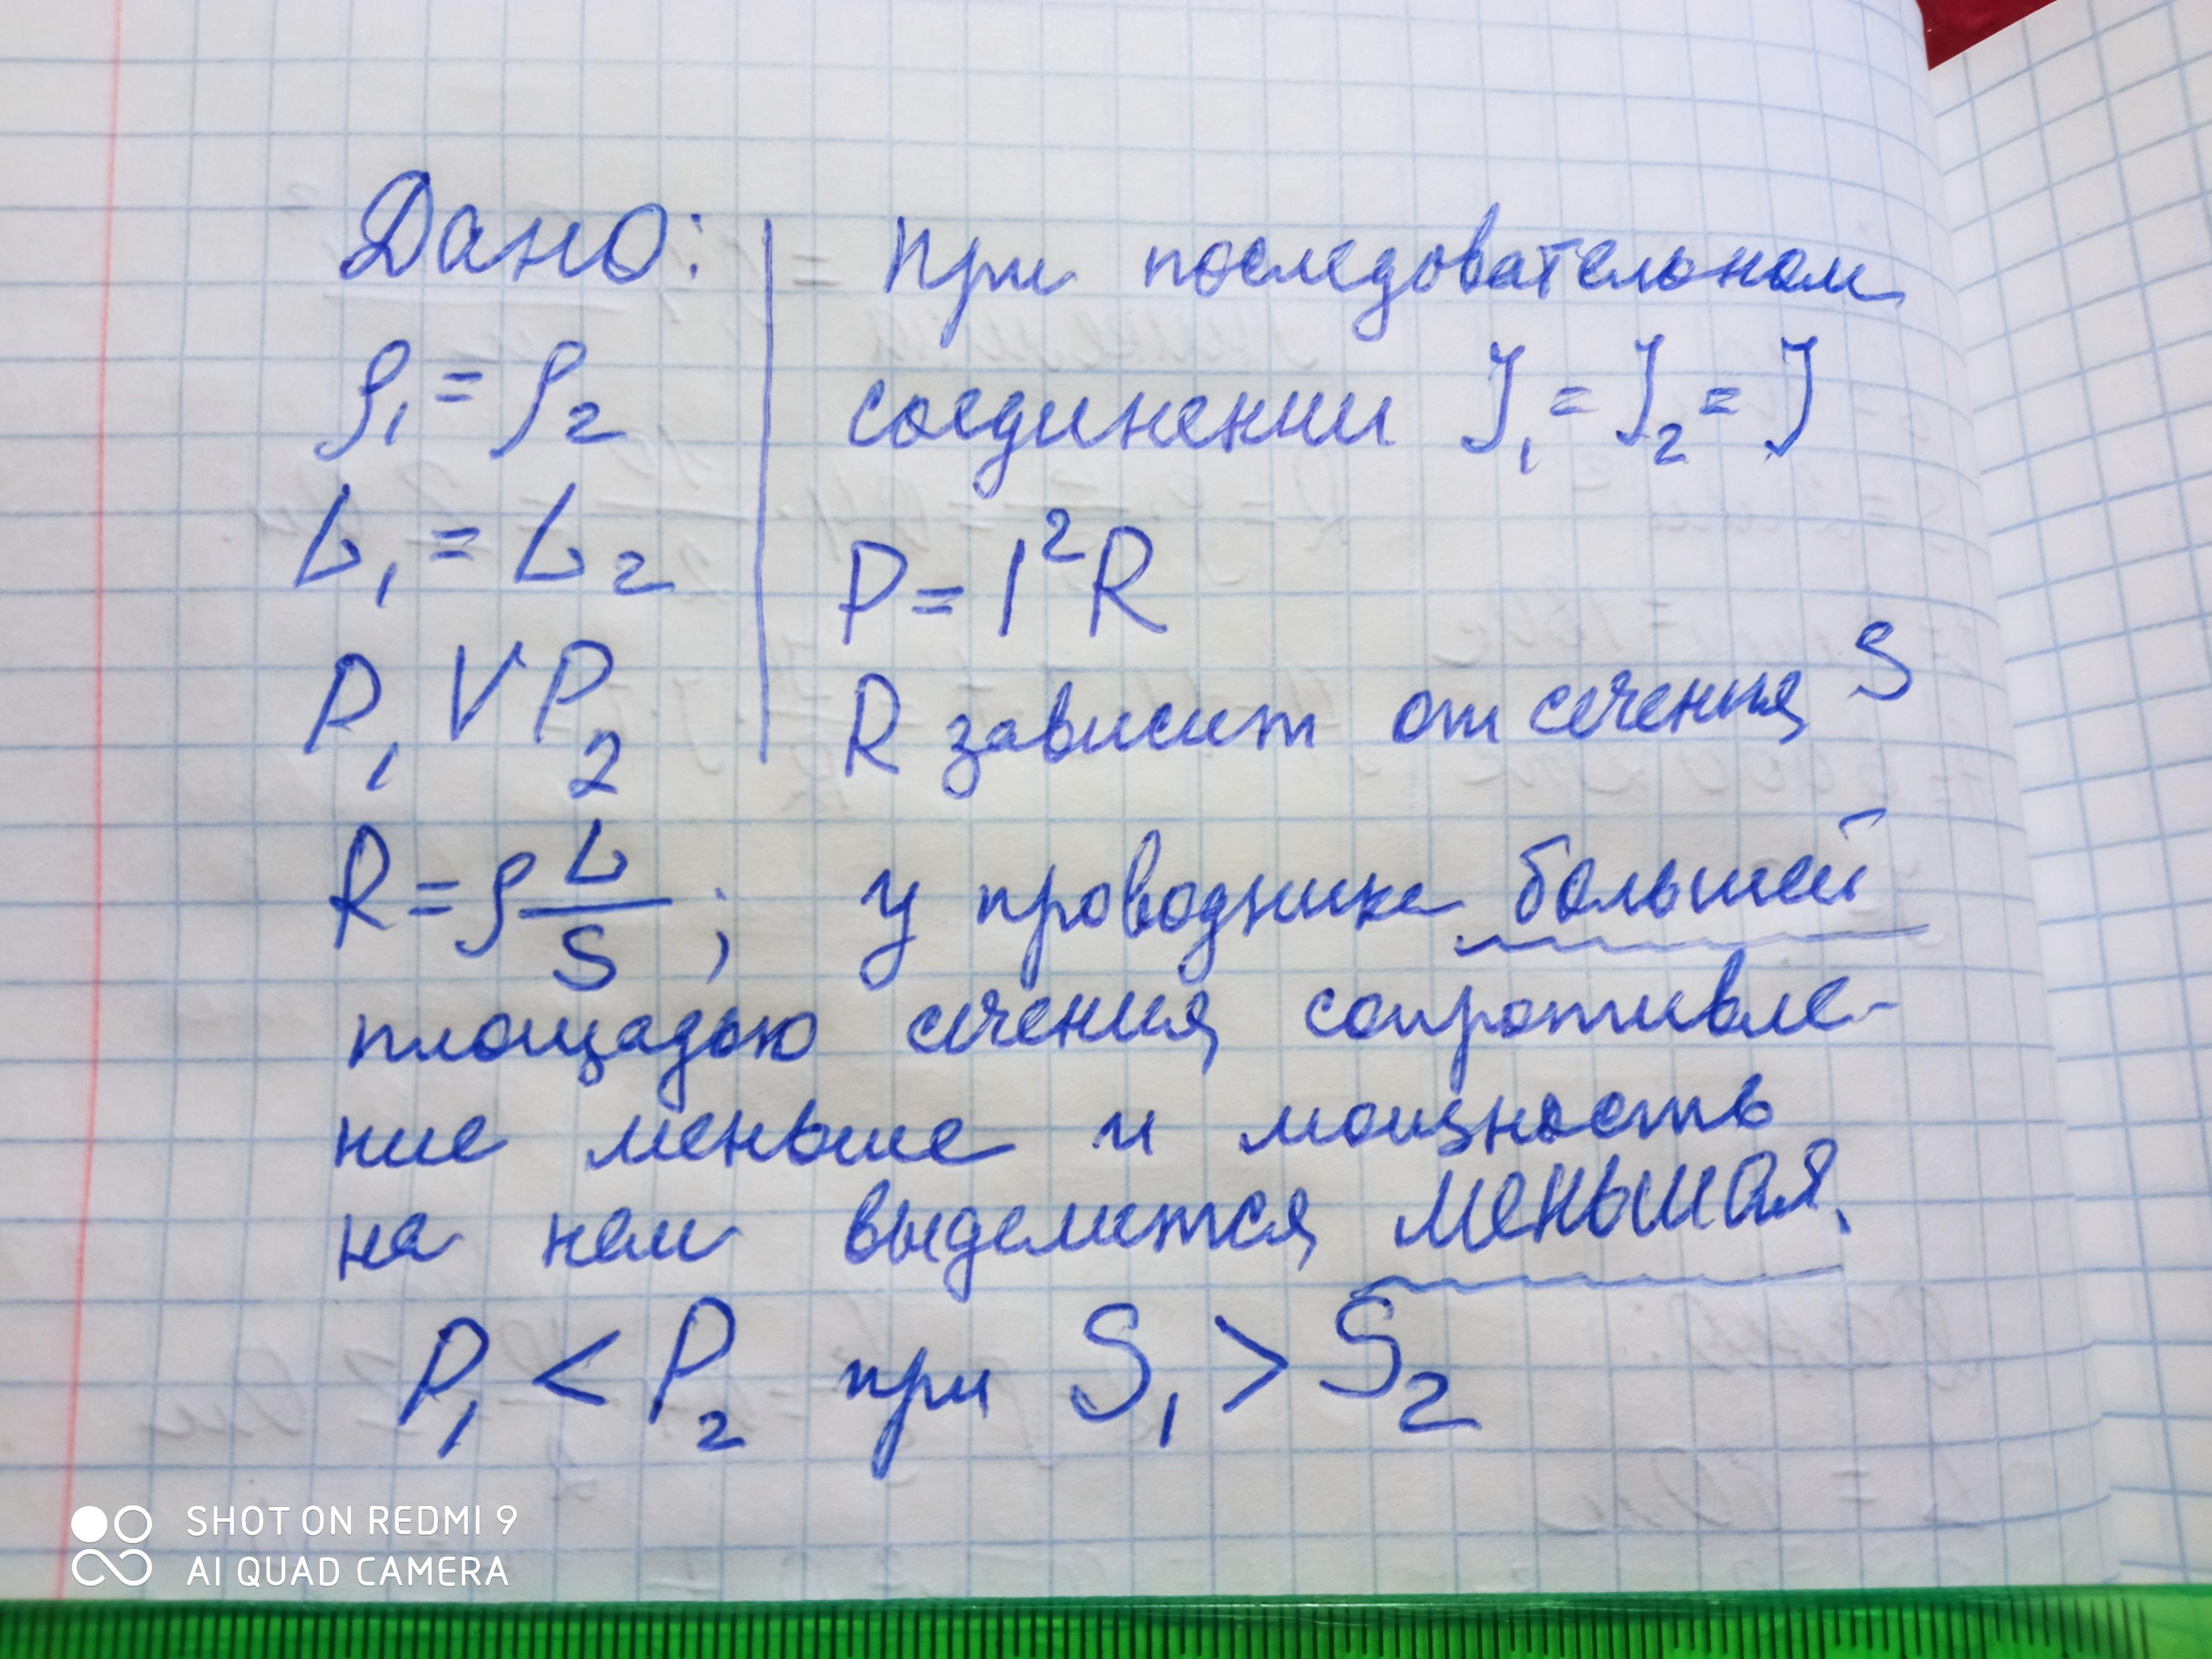 Дано:
ρ₁ = ρ₂
L₁ = L₂
P₁ V P₂
При последовательном
соединении J₁ = J₂ = J
P = I²R
R зависит от сечения S
R = ρ L/S ; у проводника большей
площадью сечения сопротивле-
ние меньше и мощность
на нем выделится меньшая.
P₁ < P₂ при S₁ > S₂
SHOT ON REDMI 9
AI QUAD CAMERA